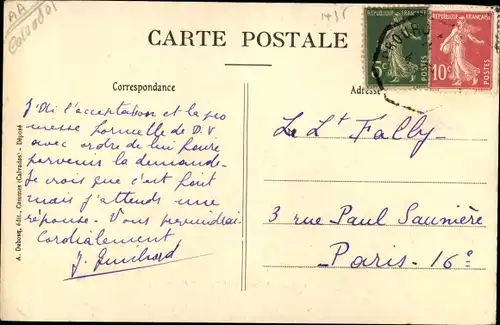 AA
Calvados
1418
CARTE POSTALE
REPUBLIQUE FRANÇAISE
REPUBLIQUE FRANÇAISE
10c
POSTES
POSTES
Correspondance
Adresse
J'ai l'acceptation et la pro
messe formelle de D.V.
avec ordre de lui faire
parvenir la demande.
Je crois que c'est fait
mais j'attends une
réponse. Vous
Cordialement
J.
Le Lt Fally
3 rue Paul Saunière
Paris. 16e
A. Dubosq, édit., Commes (Calvados) - Déposé